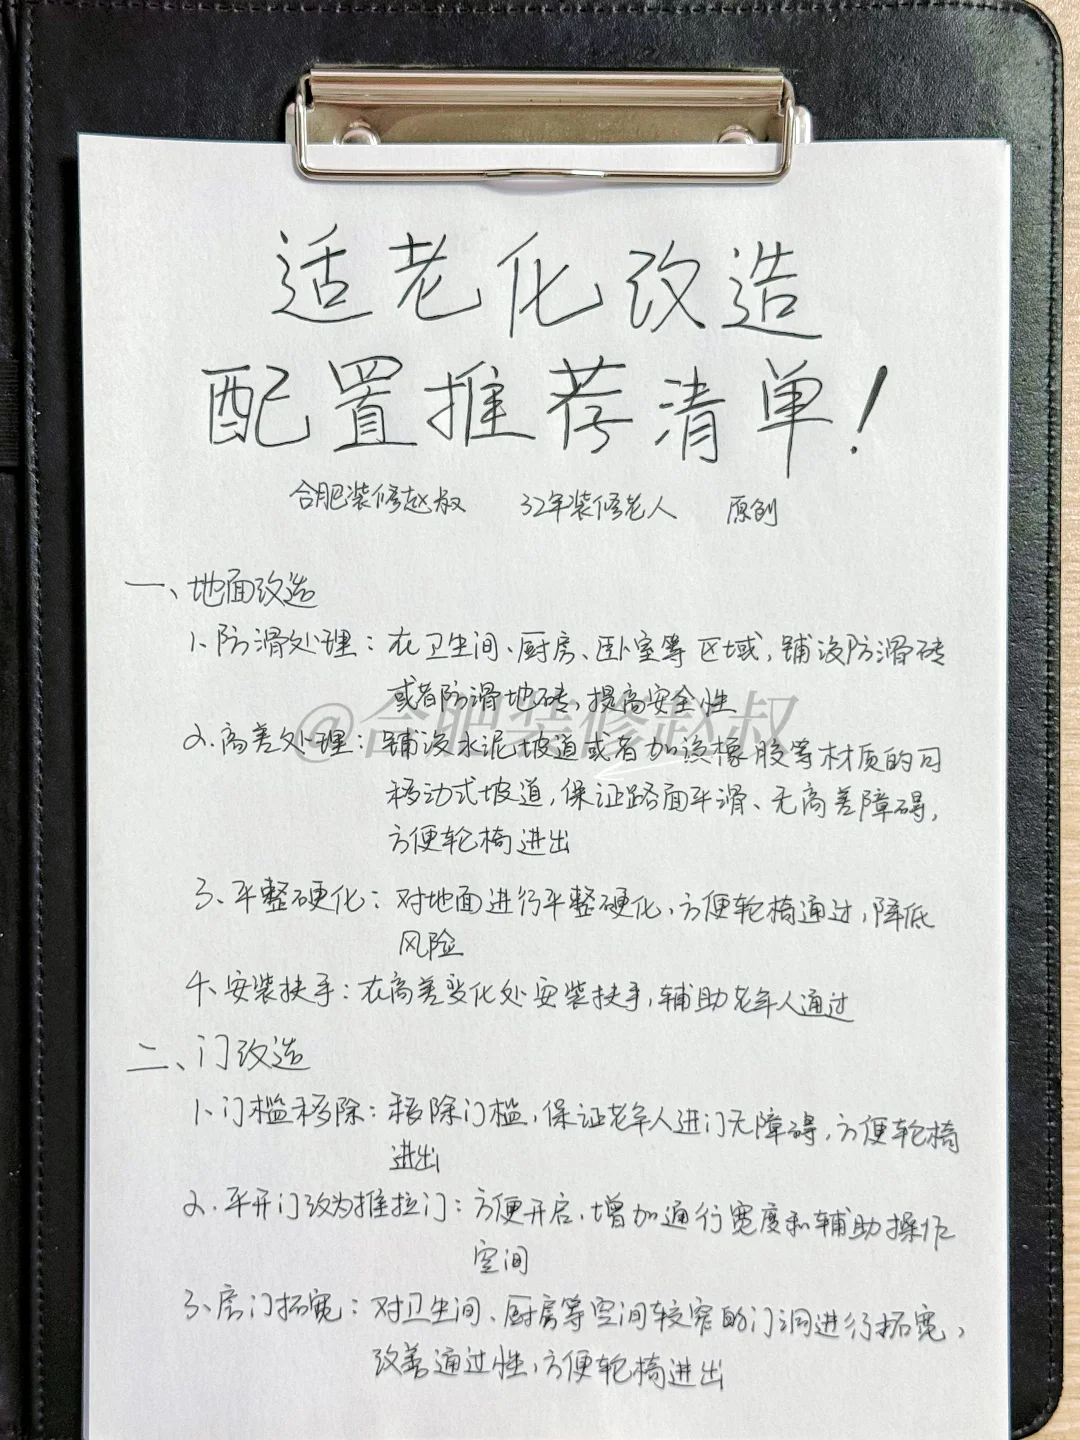 适老化改造
配置推荐清单！
合肥装修赵叔 32年装修老人 原创
一、地面改造
1、防滑处理：在卫生间、厨房、卧室等区域，铺设防滑砖
或者防滑地砖，提高安全性
@合肥装修赵叔
2、高差处理：铺设水泥坡道或者加设橡胶等材质的可
移动式坡道，保证路面平滑、无高差障碍，
方便轮椅进出
3、平整硬化：对地面进行平整硬化，方便轮椅通过，降低
风险
4、安装扶手：在高差变化处安装扶手，辅助老年人通过
二、门改造
1、门槛移除：移除门槛，保证老年人进门无障碍，方便轮椅
进出
2、平开门改为推拉门：方便开启，增加通行宽度和辅助操作
空间
3、房门拓宽：对卫生间、厨房等空间较窄的门洞进行拓宽，
改善通过性，方便轮椅进出